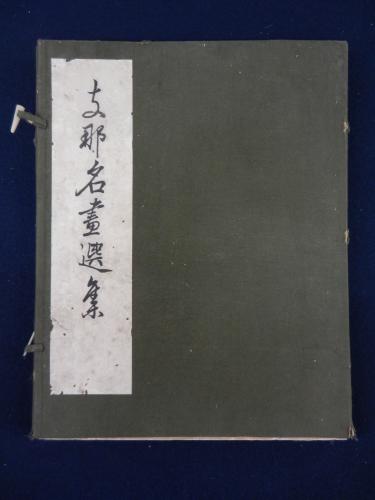 支那名畫選集